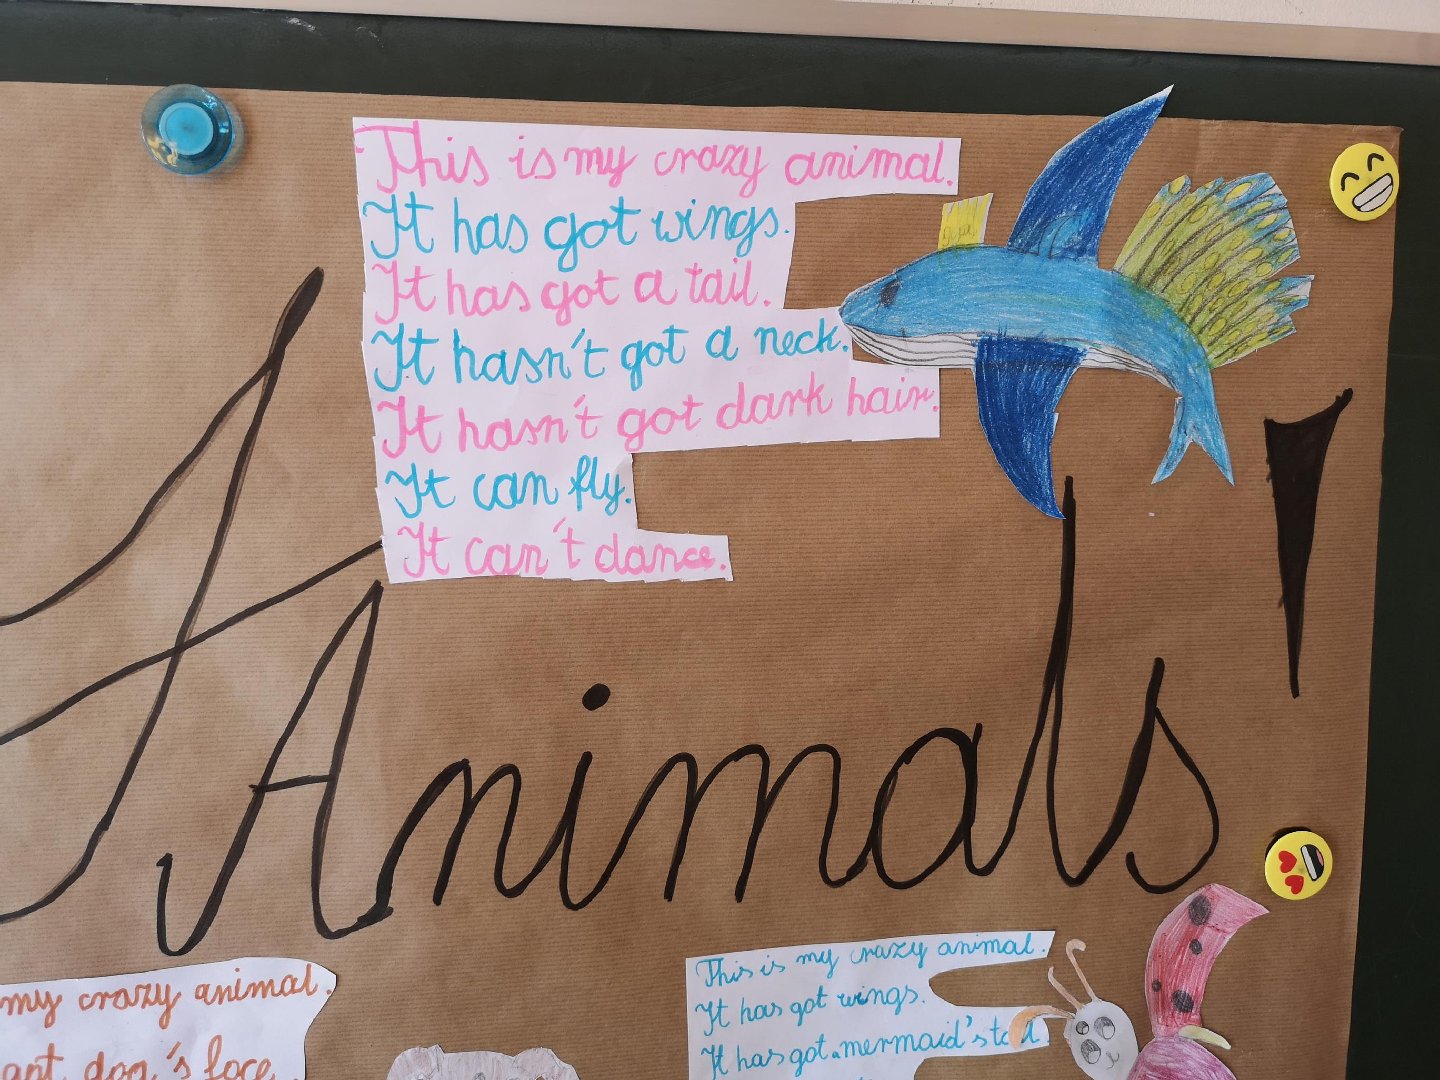 This is my crazy animal.
It has got wings.
It has got a tail.
It hasn't got a neck.
It hasn't got dark hair.
It can fly.
It can't dance.
Animals!
my crazy animal.
got dog's face.
This is my crazy animal.
It has got wings.
It has got a mermaid's tail.